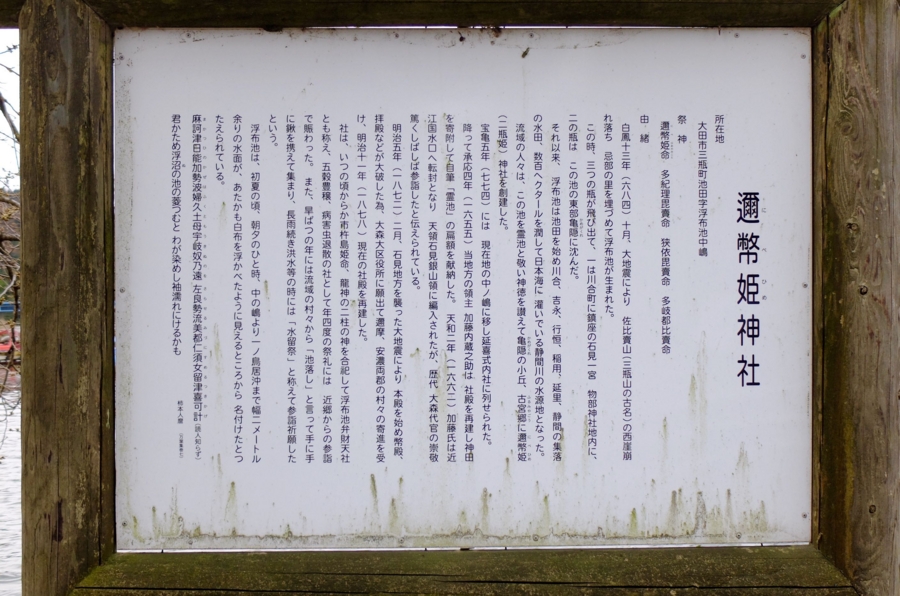 邇幣姫神社
所在地
大田市三瓶町池田字浮布池中嶋
祭神
邇幣姫命 多紀理毘賣命 狭依毘賣命 多岐都比賣命
由緒
白鳳十三年(六八四)十月、大地震により 佐比賣山(三瓶山の古名)の西崖崩
れ落ち 忌部の里を埋づめて浮布池が生まれた。
この時、三つの瓶が飛び出て、一は川合町に鎮座の石見一宮 物部神社地内に、
二の瓶は この池の東部亀隠に沈んだ。
それ以来、 浮布池は池田を始め川合、吉永、行恒、稲用、延里、静間の集落
の水田、数百ヘクタールを潤して日本海に 灌いでいる静間川の水源地となった。
流域の人々は、この池を霊池と敬い神徳を讃えて亀隠の小丘、古宮郷に邇幣姫
(二瓶姫)神社を創建した。
宝亀五年(七七四)には 現在地の中ノ嶋に移し延喜式内社に列せられた。
降って承応四年(一六五五)当地方の領主 加藤内蔵之助は 社殿を再建し神田
を寄附して自筆「霊池」の扁額を献納した。 天和二年(一六六二)加藤氏は近
江国水口へ転封となり 天領石見銀山領に編入されたが、歴代 大森代官の崇敬
篤くしばしば参詣したと伝えられている。
明治五年(一八七二)二月、石見地方を襲った大地震により 本殿を始め幣殿、
拝殿などが大破した為、大森大区役所に願出て邇摩、安濃両郡の村々の寄進を受
け、明治十一年(一八七八)現在の社殿を再建した。
社は、いつの頃からか市杵島姫命、龍神の二柱の神を合祀して浮布池弁財天社
とも称え、五穀豊穣、病害虫退散の社として年四度の祭礼には 近郷からの参詣
で賑わった。また、旱ばつの年には流域の村々から「池落し」と言って手に手
に鍬を携えて集まり、長雨続き洪水等の時には「水留祭」と称えて参詣祈願した
という。
浮布池は、初夏の頃、朝夕のひと時、中の嶋より一ノ鳥居沖まで幅二メートル
余りの水面が、あたかも白布を浮かべたように見えるところから 名付けたとつ
たえられている。
麻訶津日能加勢波婦久土母宇岐奴乃遠 左良勢流美都仁須女留津喜可計(読人知らず)
君がため浮沼の池の菱つむと わが染めし袖濡れにけるかも
柿本人麿